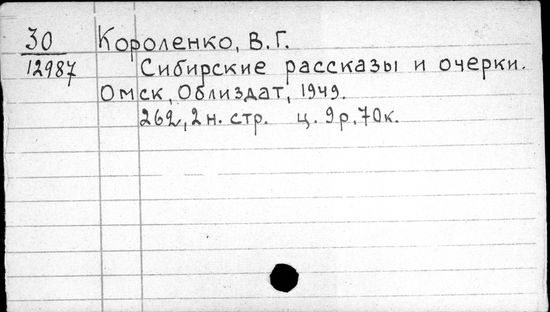 30 Короленко, В.Г.
12987 Сибирские рассказы и очерки.
Омск, Облиздат, 1949.
262, 2 н. стр. ц. 9 р. 70 к.